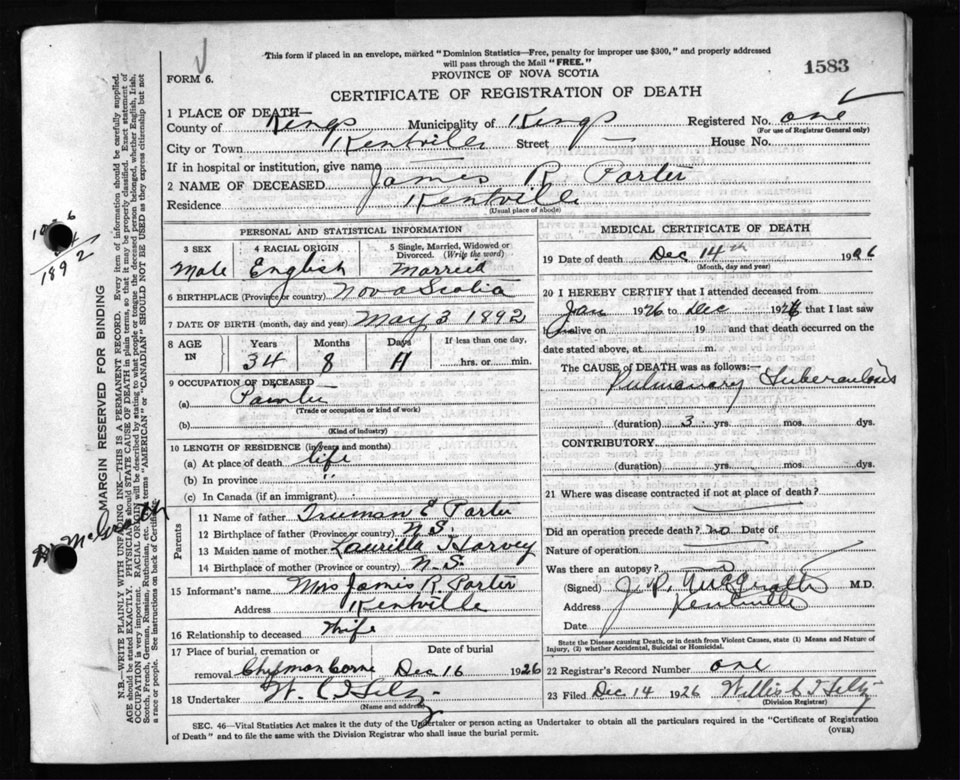 This form if placed in an envelope, marked "Dominion Statistics—Free, penalty for improper use $300," and properly addressed
will pass through the Mail "FREE."
PROVINCE OF NOVA SCOTIA
FORM 6.
1583
CERTIFICATE OF REGISTRATION OF DEATH
1 PLACE OF DEATH—
County of Kings Municipality of Kings Registered No. one
(For use of Registrar General only)
City or Town Kentville Street House No.
If in hospital or institution, give name
2 NAME OF DECEASED James R. Porter
Residence Kentville
(Usual place of abode)
PERSONAL AND STATISTICAL INFORMATION
3 SEX 4 RACIAL ORIGIN 5 Single, Married, Widowed or Divorced. (Write the word)
Male English Married
6 BIRTHPLACE (Province or country) Nova Scotia
7 DATE OF BIRTH (month, day and year) May 3 1892
8 AGE IN Years Months Days If less than one day,
34 8 11 hrs. or min.
9 OCCUPATION OF DECEASED—
(a) Painter
(Trade or occupation or kind of work)
(b)
(Kind of industry)
10 LENGTH OF RESIDENCE (in years and months)
(a) At place of death life
(b) In province "
(c) In Canada (if an immigrant)
Parents
11 Name of father Truman E Porter
12 Birthplace of father (Province or country) N.S.
13 Maiden name of mother Harvey
14 Birthplace of mother (Province or country) N.S.
15 Informant's name Mrs James R. Porter
Address Kentville
16 Relationship to deceased Wife
17 Place of burial, cremation or removal Date of burial
Chipman Corne Dec 16 1926
18 Undertaker
(Name and address)
MEDICAL CERTIFICATE OF DEATH
19 Date of death Dec 14th 1926
(Month, day and year)
20 I HEREBY CERTIFY that I attended deceased from
Jan 1926 to Dec 1926 that I last saw
h alive on 19 and that death occurred on the
date stated above, at m.
The CAUSE OF DEATH was as follows:—
Pulmonary Tuberculosis
(duration) 3 yrs. mos. dys.
CONTRIBUTORY
(duration) yrs. mos. dys.
21 Where was disease contracted if not at place of death?
Did an operation precede death? no Date of
Nature of operation
Was there an autopsy?
(Signed) J. P. McGrath M.D.
Address Kentville
Date
State the Disease causing Death, or in death from Violent Causes, state (1) Means and Nature of
Injury, (2) whether Accidental, Suicidal or Homicidal.
22 Registrar's Record Number one
23 Filed Dec 14 1926
(Division Registrar)
SEC. 46—Vital Statistics Act makes it the duty of the Undertaker or person acting as Undertaker to obtain all the particulars required in the "Certificate of Registration
of Death" and to file the same with the Division Registrar who shall issue the burial permit. (OVER)
MARGIN RESERVED FOR BINDING
N.B.—WRITE PLAINLY WITH UNFADING INK—THIS IS A PERMANENT RECORD. Every item of information should be carefully supplied.
AGE should be stated EXACTLY. PHYSICIANS should STATE CAUSE OF DEATH in plain terms, so that it may be properly classified. Exact statement of
OCCUPATION is very important. RACIAL ORIGIN will be described by stating to what people or tongue the deceased person belonged, whether English, Irish,
Scotch, French, German, Russian, Ruthenian, etc. The terms "AMERICAN" or "CANADIAN" SHOULD NOT BE USED as they express citizenship but not
a race or people. See instructions on back of Certificate.
1892
McGrath